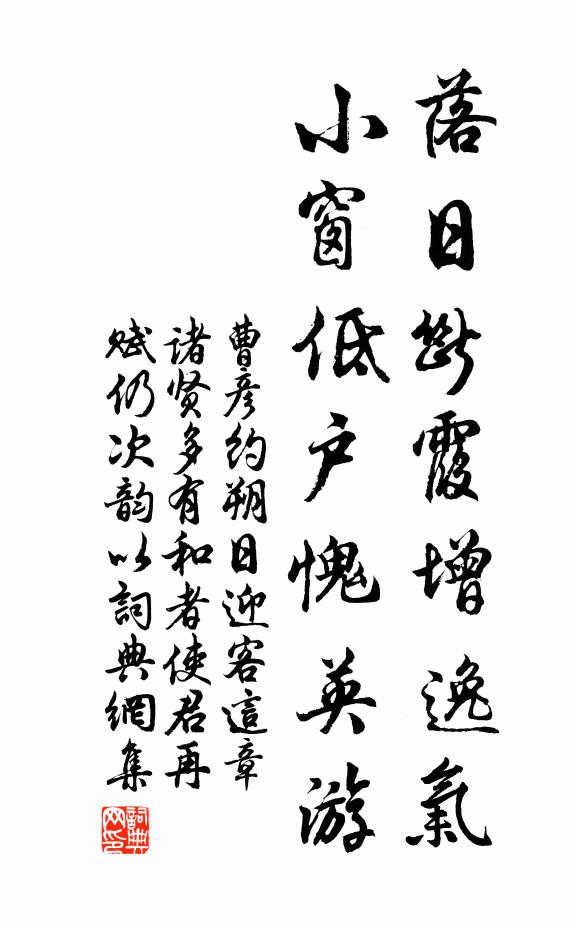 落日斷霞增逸氣
小窗低户愧英游
曹彦約朔日迎客這章
诸贤多有和者使君再
赋仍次韵以詞典網集
詞典網印